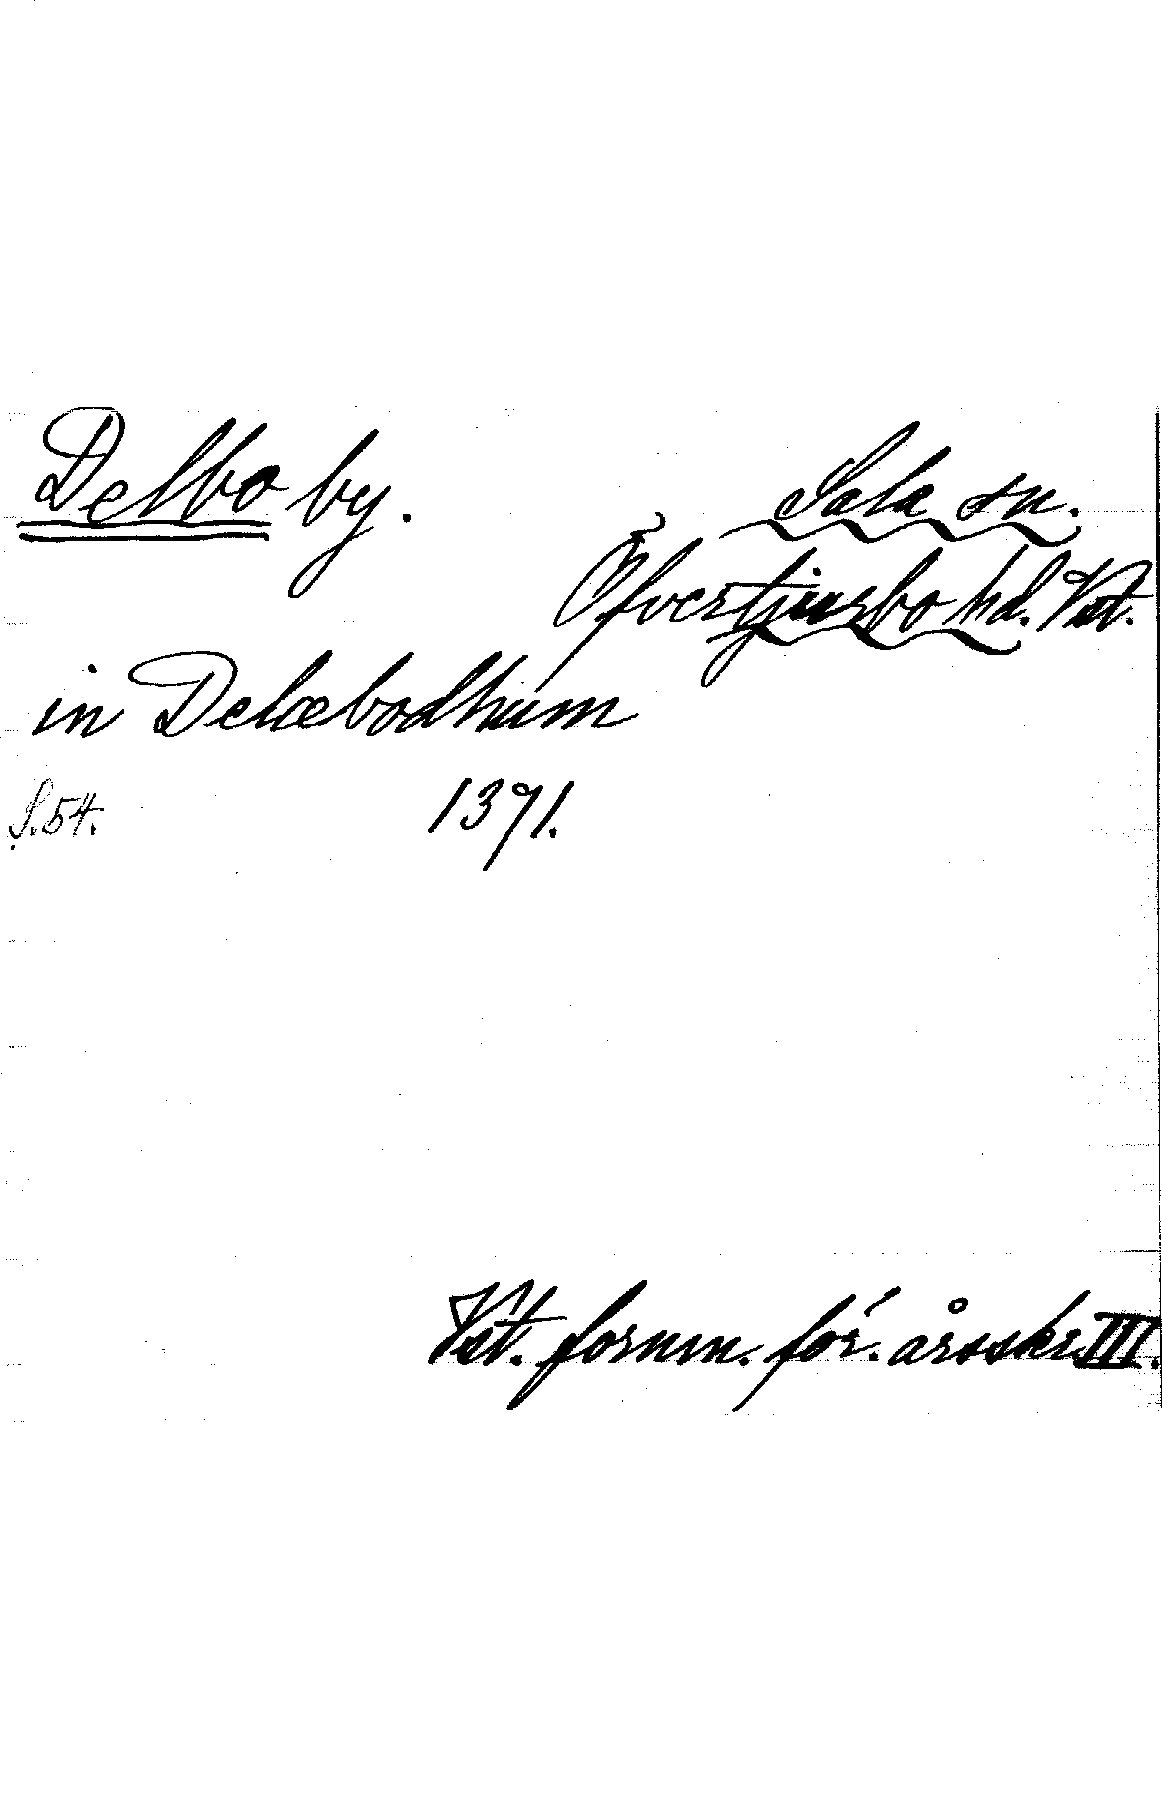 Delbo by.
Sala sn.
Öfvertjurbo hd. Vst.
in Delæbodhum
S. 54.
1371.
Vst. fornm. för. årsskr. III.